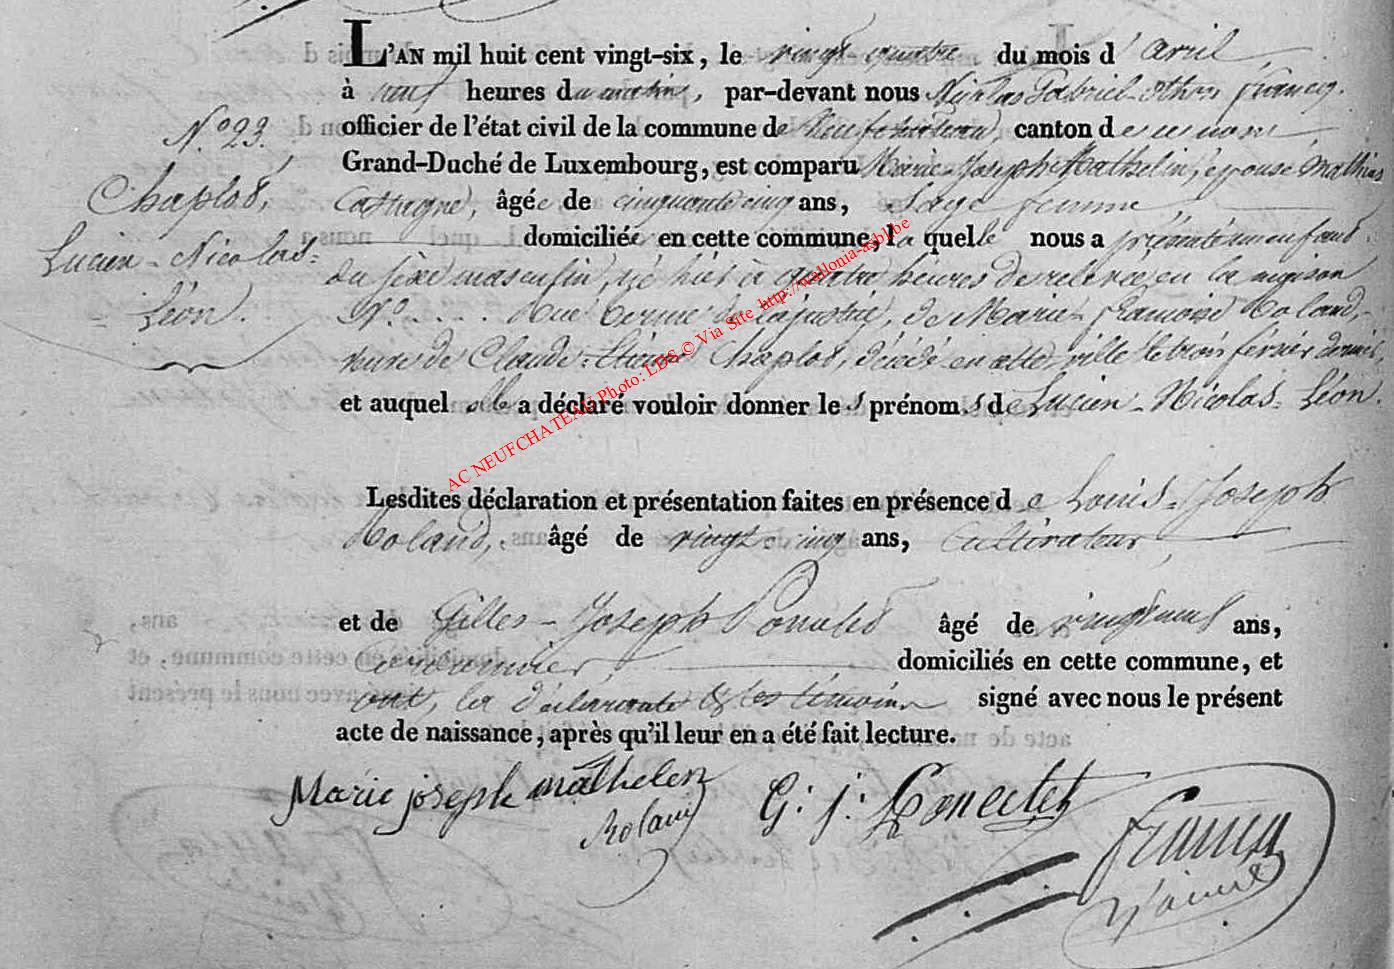 L'AN mil huit cent vingt-six, le vingt quatre du mois d'avril,
à neuf heures du matin, par-devant nous Nicolas Gabriel Francq,
N.° 23. officier de l'état civil de la commune de Neufchateau, canton de ce nom
Grand-Duché de Luxembourg, est comparu Marie-Joseph Mathelin, épouse Mathias
Chaplot, Castagne, âgée de cinquante cinq ans, Sage femme
domiciliée en cette commune, laquelle nous a présenté un enfant
Lucien Nicolas- du sexe masculin, né hier à quatre heures de relevée en la maison
Léon. N.° .... rue de la justice, de Marie Roland,
veuve de Claude Chaplot, décédé en cette ville le trois février dernier
et auquel elle a déclaré vouloir donner les prénoms de Lucien-Nicolas-Léon.
Lesdites déclaration et présentation faites en présence de Louis-Joseph
Roland, âgé de vingt-cinq ans, Cultivateur,
et de Gilles-Joseph âgé de vingt neuf ans,
domiciliés en cette commune, et
ont, la déclarante & les témoins signé avec nous le présent
acte de naissance, après qu'il leur en a été fait lecture.
Marie joseph mathelen
Roland
G: j:
francq
AC NEUFCHATEAU Photo: LDS © Via Site http://wallonia-asbl.be